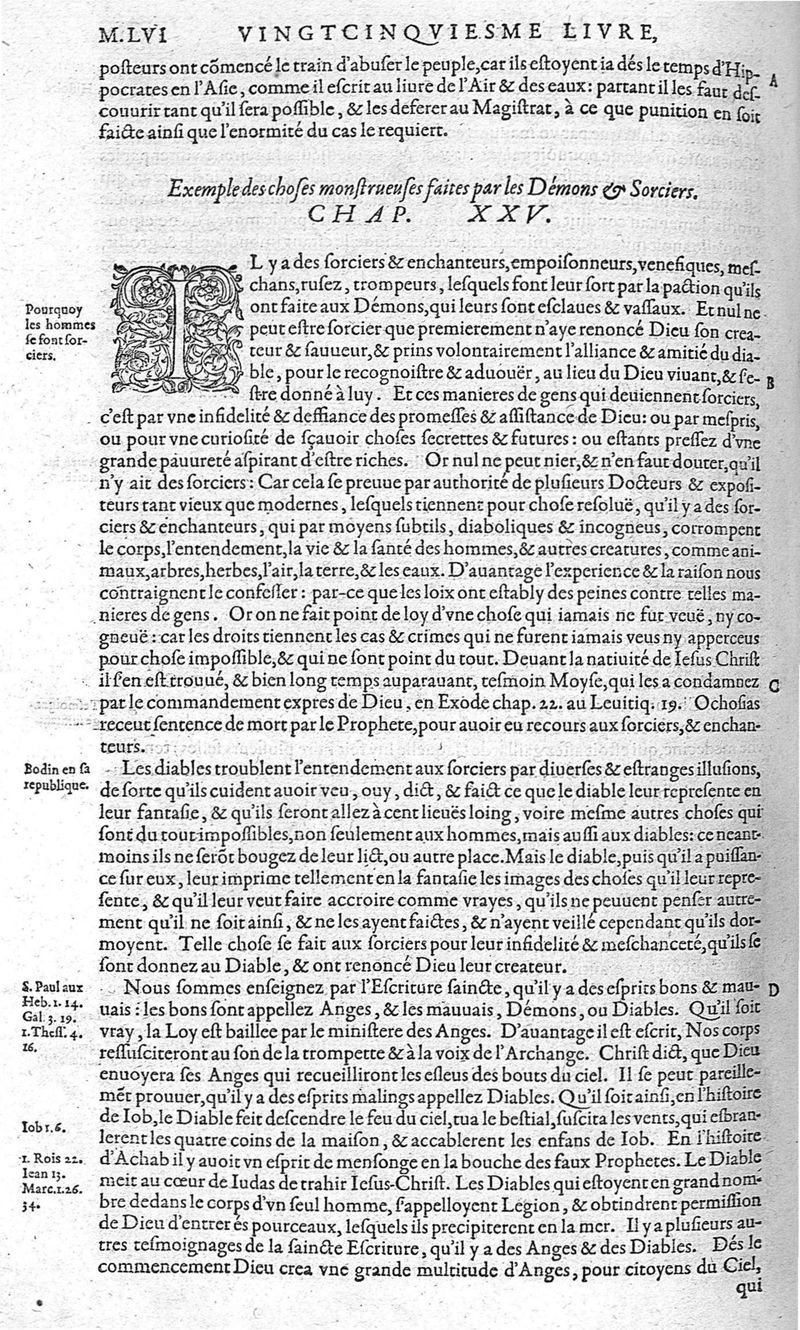 M.LVI VINGTCINQVIESME LIVRE,
posteurs ont cõmencé le train d'abuser le peuple, car ils estoyent ia dés le temps d'Hip-
pocrates en l'Asie, comme il escrit au liure de l'Air & des eaux: partant il les faut des-
couurir tant qu'il sera possible, & les deferer au Magistrat, à ce que punition en soit
faicte ainsi que l'enormité du cas le requiert.
A
Exemple des choses monstrueuses faites par les Démons & Sorciers.
CHAP. XXV.
IL y a des sorciers & enchanteurs, empoisonneurs, venefiques, mes-
chans, rusez, trompeurs, lesquels font leur sort par la paction qu'ils
ont faite aux Démons, qui leurs sont esclaues & vassaux. Et nul ne
peut estre sorcier que premierement n'aye renoncé Dieu son crea-
teur & sauueur, & prins volontairement l'alliance & amitié du dia-
ble, pour le recognoistre & aduouër, au lieu du Dieu viuant, & s'e-
stre donné à luy. Et ces manieres de gens qui deuiennent sorciers,
Pourquoy
les hommes
se font sor-
ciers.
B
c'est par vne infidelité & deffiance des promesses & assistance de Dieu: ou par mespris,
ou pour vne curiosité de sçauoir choses secrettes & futures: ou estants pressez d'vne
grande pauureté aspirant d'estre riches. Or nul ne peut nier, & n'en faut douter, qu'il
n'y ait des sorciers: Car cela se preuue par authorité de plusieurs Docteurs & exposi-
teurs tant vieux que modernes, lesquels tiennent pour chose resoluë, qu'il y a des sor-
ciers & enchanteurs, qui par moyens subtils, diaboliques & incogneus, corrompent
le corps, l'entendement, la vie & la santé des hommes, & autres creatures, comme ani-
maux, arbres, herbes, l'air, la terre, & les eaux. D'auantage l'experience & la raison nous
contraignent le confesser: par-ce que les loix ont estably des peines contre telles ma-
nieres de gens. Or on ne fait point de loy d'vne chose qui iamais ne fut veuë, ny co-
gneuë: car les droits tiennent les cas & crimes qui ne furent iamais veus ny apperceus
pour chose impossible, & qui ne sont point du tout. Deuant la natiuité de Iesus Christ
il s'en est trouué, & bien long temps auparauant, tesmoin Moyse, qui les a condamnez
par le commandement expres de Dieu, en Exode chap. 22. au Leuitiq. 19. Ochosias
receut sentence de mort par le Prophete, pour auoir eu recours aux sorciers, & enchan-
teurs.
C
Les diables troublent l'entendement aux sorciers par diuerses & estranges illusions,
de sorte qu'ils cuident auoir veu, ouy, dict, & faict ce que le diable leur represente en
leur fantasie, & qu'ils seront allez à cent lieuës loing, voire mesme autres choses qui
sont du tout impossibles, non seulement aux hommes, mais aussi aux diables: ce neant-
moins ils ne serõt bougez de leur lict, ou autre place. Mais le diable, puis qu'il a puissan-
ce sur eux, leur imprime tellement en la fantasie les images des choses qu'il leur repre-
sente, & qu'il leur veut faire accroire comme vrayes, qu'ils ne peuuent penser autre-
ment qu'il ne soit ainsi, & ne les ayent faictes, & n'ayent veillé cependant qu'ils dor-
moyent. Telle chose se fait aux sorciers pour leur infidelité & meschanceté, qu'ils se
sont donnez au Diable, & ont renoncé Dieu leur createur.
Bodin en sa
republique.
Nous sommes enseignez par l'Escriture saincte, qu'il y a des esprits bons & mau-
uais: les bons sont appellez Anges, & les mauuais, Démons, ou Diables. Qu'il soit
vray, la Loy est baillee par le ministere des Anges. D'auantage il est escrit, Nos corps
ressusciteront au son de la trompette & à la voix de l'Archange. Christ dict, que Dieu
enuoyera ses Anges qui recueilliront les esleus des bouts du ciel. Il se peut pareille-
mẽt prouuer, qu'il y a des esprits malings appellez Diables. Qu'il soit ainsi, en l'histoire
de Iob, le Diable feit descendre le feu du ciel, tua le bestial, suscita les vents, qui esbran-
lerent les quatre coins de la maison, & accablerent les enfans de Iob. En l'histoire
d'Achab il y auoit vn esprit de mensonge en la bouche des faux Prophetes. Le Diable
meit au cœur de Iudas de trahir Iesus-Christ. Les Diables qui estoyent en grand nom-
bre dedans le corps d'vn seul homme, s'appelloyent Légion, & obtindrent permission
de Dieu d'entrer és pourceaux, lesquels ils precipiterent en la mer. Il y a plusieurs au-
tres tesmoignages de la saincte Escriture, qu'il y a des Anges & des Diables. Dés le
commencement Dieu crea vne grande multitude d'Anges, pour citoyens du Ciel,
qui
S. Paul aux
Heb. 1. 14.
Gal. 3. 19.
1. Thess. 4.
16.
D
Iob 1. 6.
1. Rois 22.
Iean 13.
Marc. 1. 26.
34.